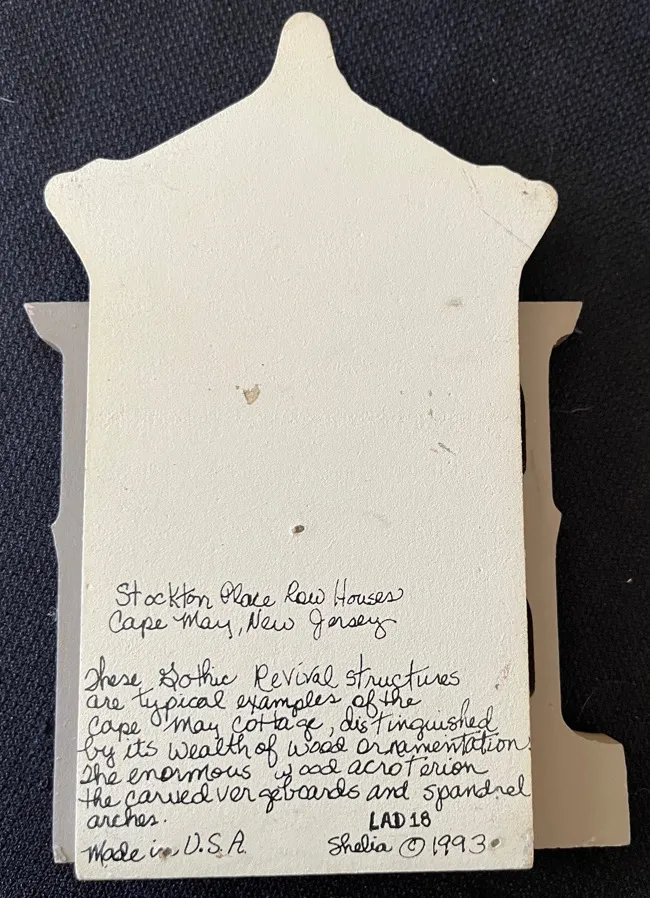 Stockton Place Row Houses
Cape May, New Jersey
These Gothic Revival structures
are typical examples of the
Cape May Cottage, distinguished
by its wealth of wood ornamentation.
The enormous wood acroterion
the carved vergeboards and spandrel
arches.
LAD 18
Made in U.S.A. Shelia © 1993